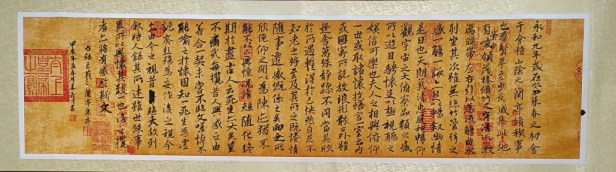 永和九年歲在癸丑暮春之初會
于會稽山陰之蘭亭脩稧事
也羣賢畢至少長咸集此地
有崇山峻領茂林脩竹又有清流激
湍映帶左右引以為流觴曲水
列坐其次雖無絲竹管弦之
盛一觴一詠亦足以暢敘幽情
是日也天朗氣清惠風和暢仰
觀宇宙之大俯察品類之盛
所以遊目騁懷足以極視聽之
娛信可樂也夫人之相與俯仰
一世或取諸懷抱悟言一室之內
或因寄所託放浪形骸之外雖
趣舍萬殊靜躁不同當其欣
於所遇暫得於己快然自足不
知老之將至及其所之既惓情
隨事遷感慨係之矣向之所
欣俛仰之間以為陳迹猶不
能不以之興懷況脩短隨化終
期於盡古人云死生亦大矣豈
不痛哉每攬昔人興感之由
若合一契未嘗不臨文嗟悼不
能喻之於懷固知一死生為虛
誕齊彭殤為妄作後之視今
亦由今之視昔悲夫故列
敘時人錄其所述雖世殊事
異所以興懷其致一也後之攬
者亦將有感於斯文